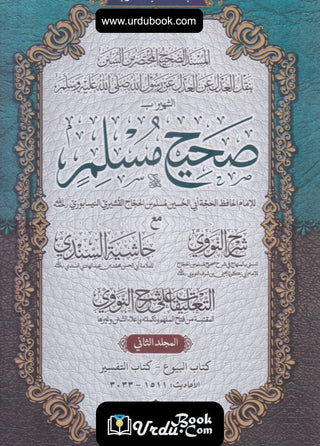 www.urdubook.com
المسند الصحيح المختصر من السنن
بنقل العدل عن العدل عن رسول الله صلى الله عليه وسلم
الشهير بـ
صحيح مسلم
للإمام الحافظ الحجة أبي الحسين مسلم بن الحجاج القشيري النيسابوري
مع
شرح النووي
حاشية السندي
التعليقات على شرح النووي
المقتبسة من فتح الملهم وتكملته وإعلاء السنن وغيرها
المجلد الثاني
كتاب البيوع - كتاب التفسير
الأحاديث: ١٥١١ - ٣٠٣٣
UrduBook.Com